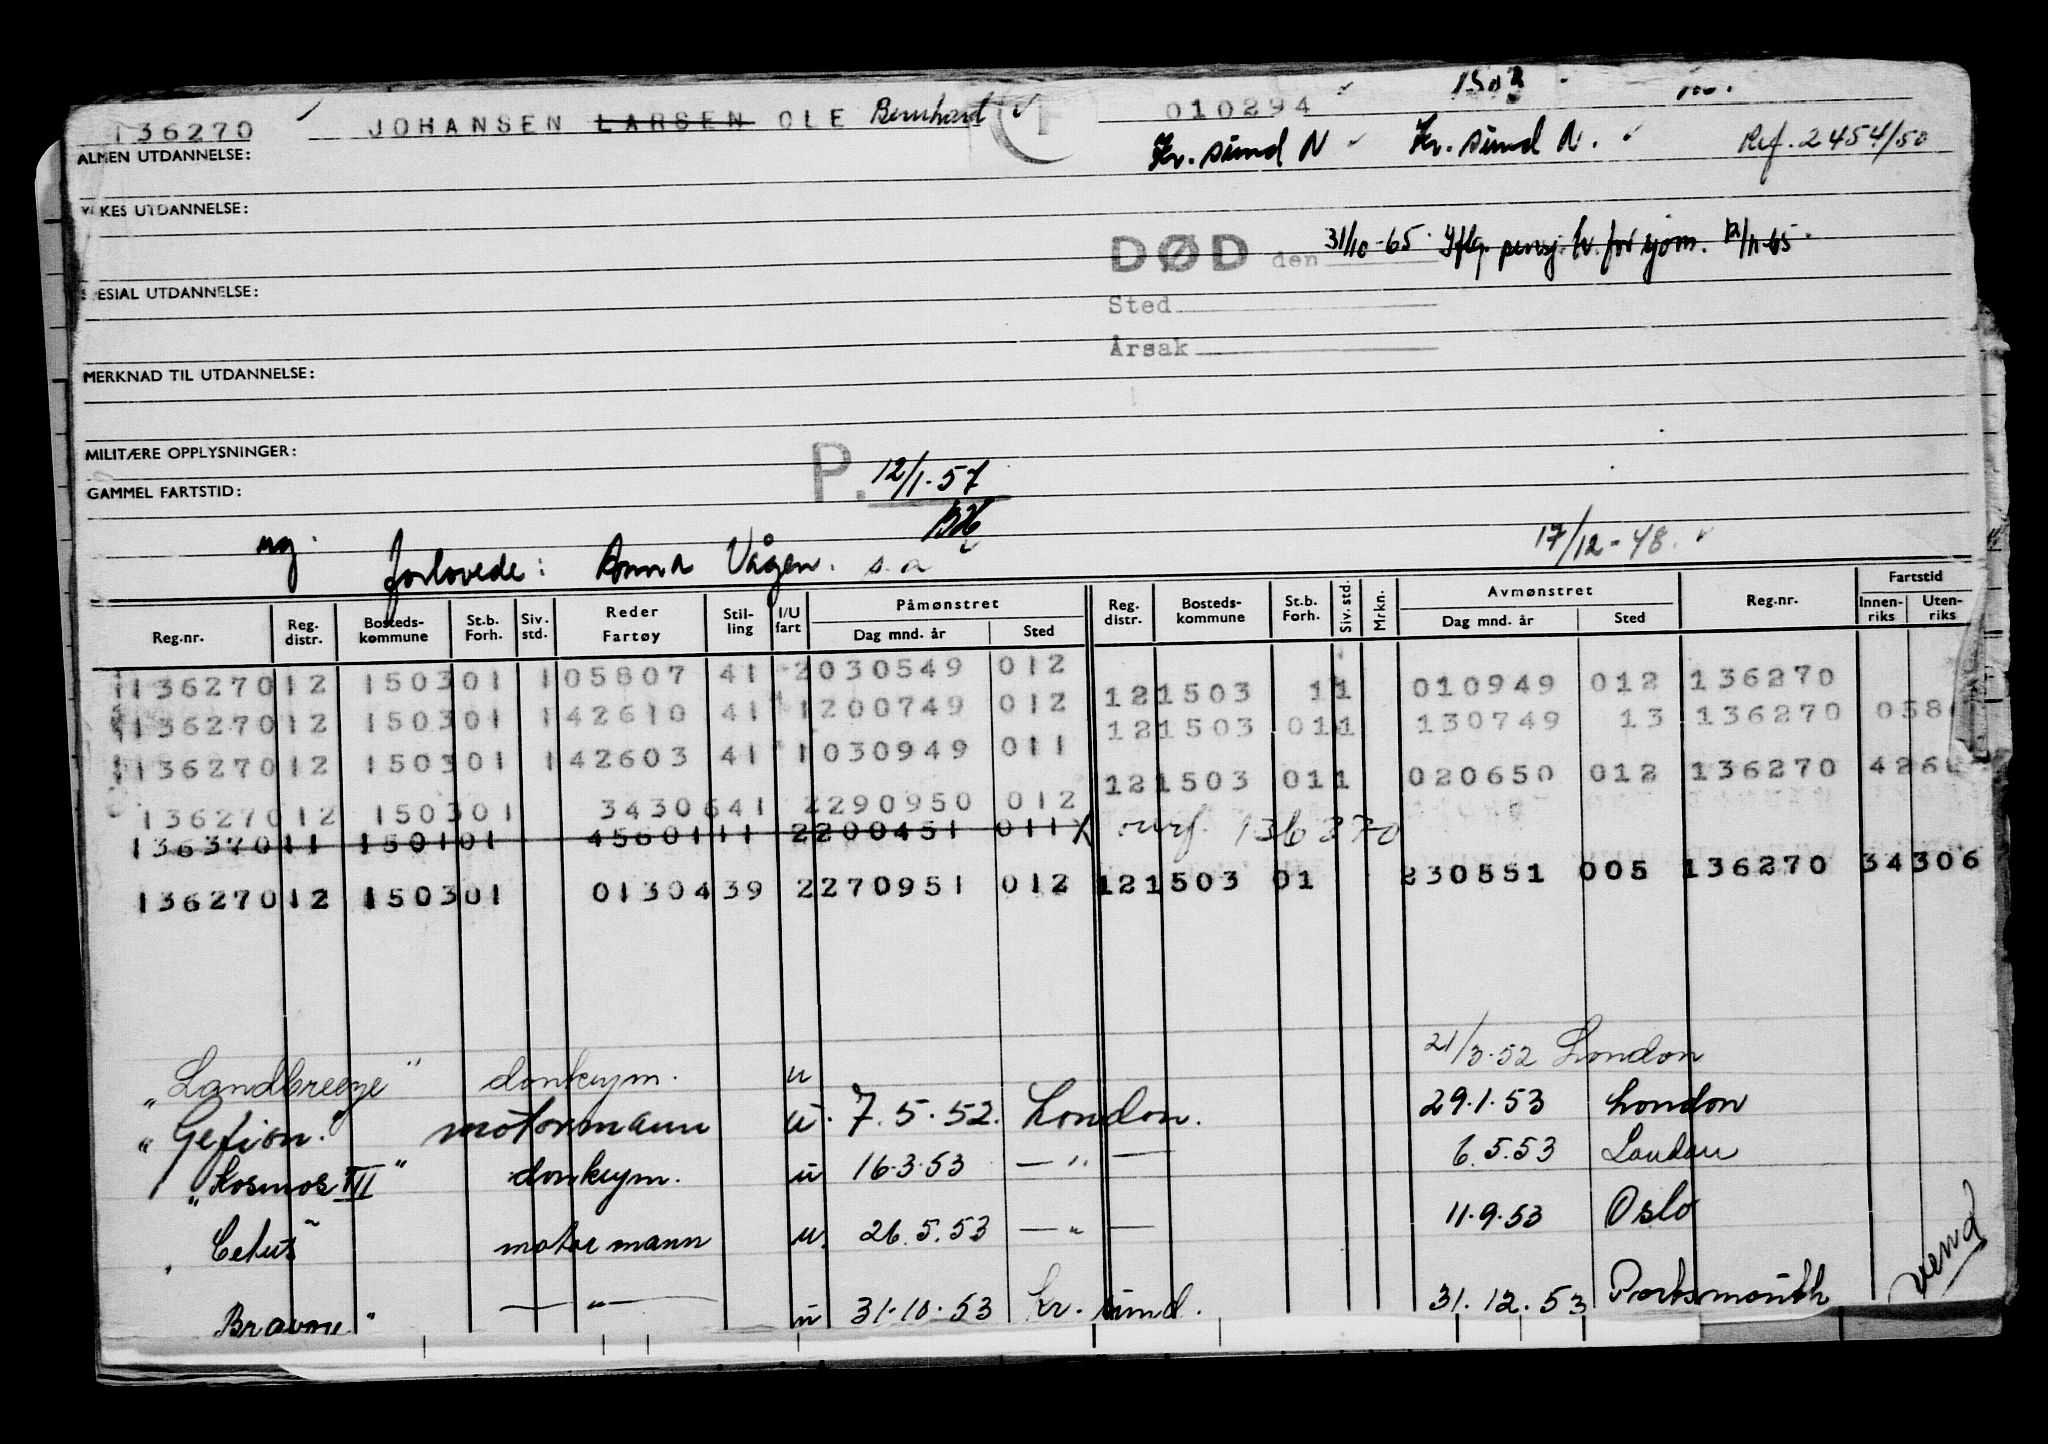 136270 JOHANSEN LARSEN OLE Bernhard 010294 1503
ALMEN UTDANNELSE: Kr. sund N Kr. sund N. Ref. 2454/50
YRKES UTDANNELSE:
DØD den 31/10-65. Iflg. pensj. tr. for sjøm. 12/11-65.
SPESIAL UTDANNELSE:
Sted
Årsak
MERKNAD TIL UTDANNELSE:
MILITÆRE OPPLYSNINGER:
P. 12/1-57
GAMMEL FARTSTID:
ug. forlovede: Anna Vågen. s.a 17/12-48.
Reg.nr. Reg. distr. Bosteds- kommune St.b. Forh. Siv. std. Reder Fartøy Stil- ling I/U fart Påmønstret Dag mnd. år Sted Reg. distr. Bosteds- kommune St.b. Forh. Siv. std. Mrkn. Avmønstret Dag mnd. år Sted Reg.nr. Fartstid Innen- riks Uten- riks
136270 12 1503 01 1 05807 41 2 030549 012 12 1503 1 1 010949 012 136270
136270 12 1503 01 1 42610 41 1 200749 012 12 1503 01 1 130749 13 136270 058
136270 12 1503 01 1 42603 41 1 030949 011 12 1503 01 1 020650 012 136270 426
136270 12 1503 01 34306 41 2 290950 012
136370 11 1501 01 45601 11 2 200451 011 X 136370
136270 12 1503 01 01304 39 2 270951 012 12 1503 01 230551 005 136270 34306
"Landbreeze" donkeym. u 21/3.52 London
"Gefion." motormann u. 7.5.52. London. 29.1.53 London
"Kosmos VII" donkeym. u 16.3.53 — " — 6.5.53 London
"Cetus" motormann u. 26.5.53 — " — 11.9.53 Oslo
Bravour" — " — u 31.10.53 Kr. sund. 31.12.53 Portsmouth
vend